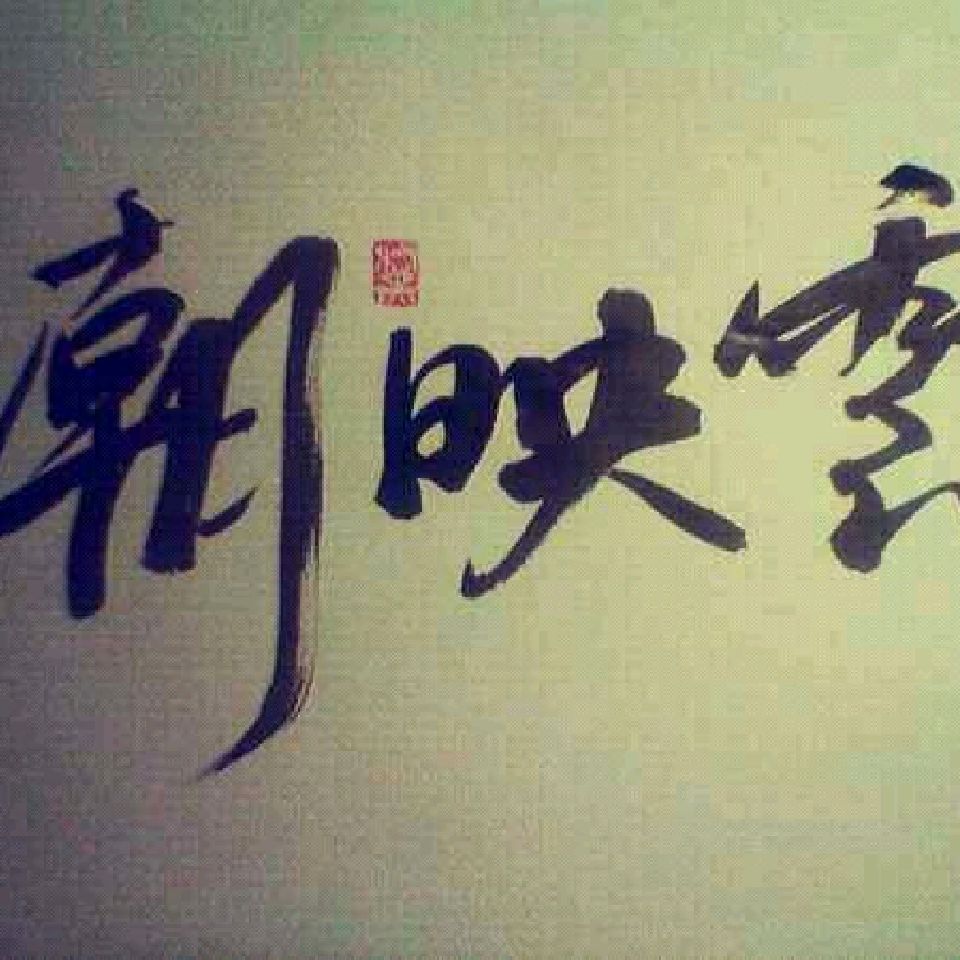 雲映朝